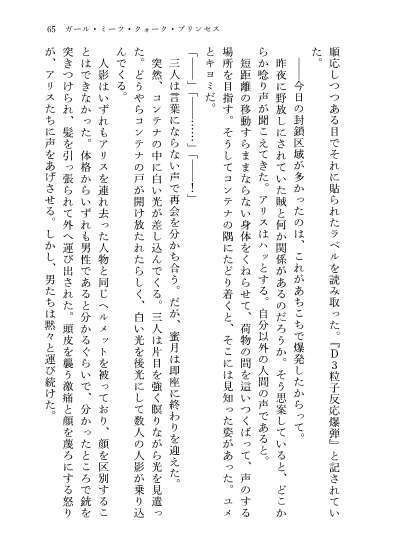 65　ガール・ミーツ・クォーク・プリンセス
順応しつつある目でそれに貼られたラベルを読み取った。『D3粒子反応爆弾』と記されてい
た。
――今日の封鎖区域が多かったのは、これがあちこちで爆発したからって。
昨夜に野放しにされていた賊と何か関係があるのだろうか。そう思案していると、どこか
らか唸り声が聞こえてきた。アリスはハッとする。自分以外の人間の声であると。
短距離の移動すらままならない身体をくねらせて、荷物の間を這いつくばって、声のする
場所を目指す。そうしてコンテナの隅にたどり着くと、そこには見知った姿があった。ユメ
とキヨミだ。
「――」「――……」「――！」
三人は言葉にならない声で再会を分かち合う。だが、蜜月は即座に終わりを迎えた。
突然、コンテナの中に白い光が差し込んでくる。三人は片目を強く瞑りながら光を見遣っ
た。どうやらコンテナの戸が開け放たれたらしく、白い光を後光にして数人の人影が乗り込
んでくる。
人影はいずれもアリスを連れ去った人物と同じヘルメットを被っており、顔を区別するこ
とはできなかった。体格からいずれも男性であると分かるぐらいで、分かったところで銃を
突きつけられ、髪を引っ張られて外へ運び出された。頭皮を襲う激痛と顔を蔑ろにする怒り
が、アリスたちに声をあげさせる。しかし、男たちは黙々と運び続けた。